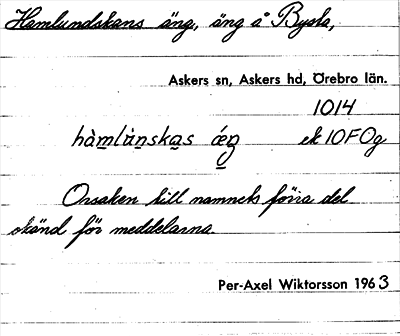 Hamlundskans äng, äng å Bysta,
Askers sn, Askers hd, Örebro län.
1014
hàmlùnskas ǽŋ ek 10F0g
Orsaken till namnets förra del
okänd för meddelarna.
Per-Axel Wiktorsson 1963